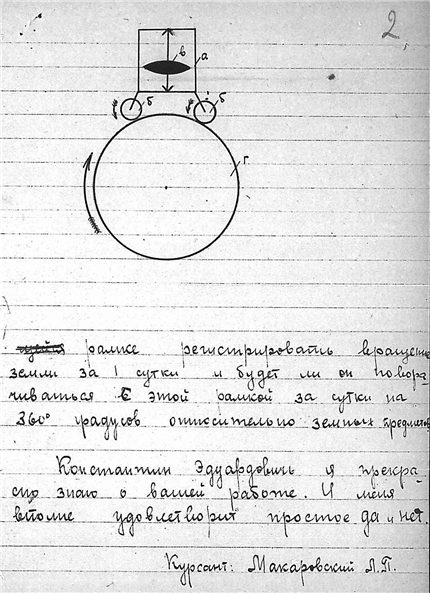 2,
в
а
б
б
г
рамке регистрировать вращение
земли за 1 сутки и будет ли он повора-
чиваться с этой рамкой за сутки на
360° градусов относительно земных предметов
Константин Эдуардовичь я прекра-
сно знаю о вашей работе. И меня
вполне удовлетворит простое да и нет.
Курсант: Макаровский Л.П.